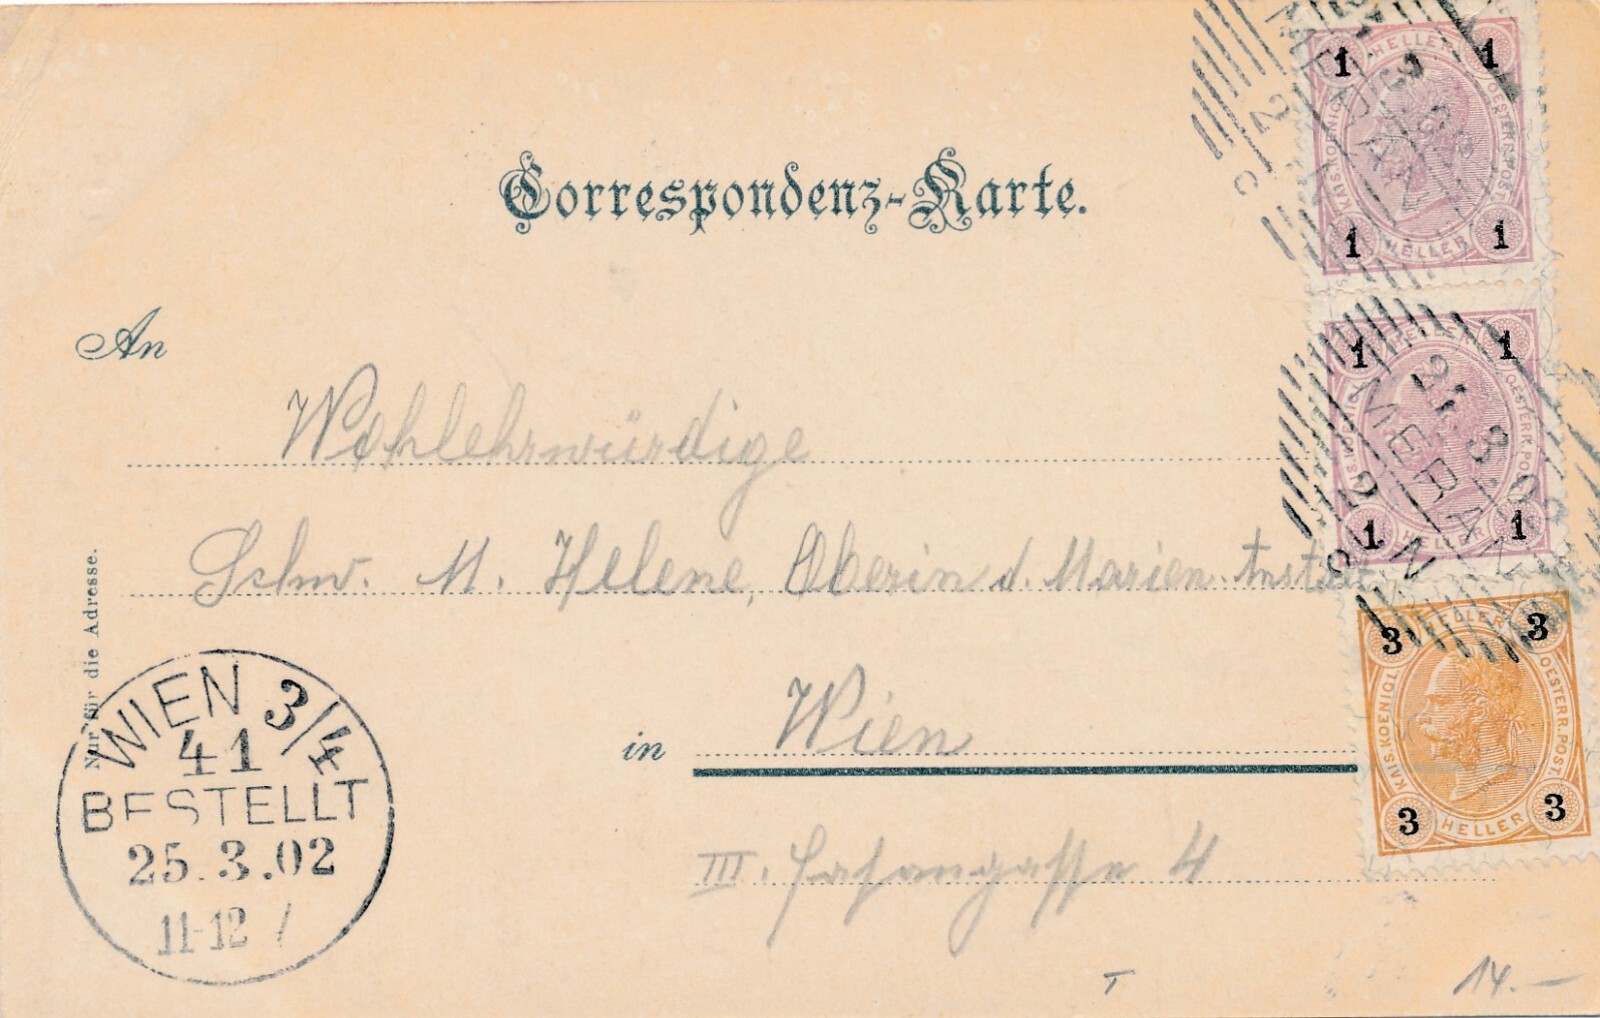 Correspondenz-Karte.
An
Wohlehrwürdige
Schw. M. Helene, Oberin d. Marien. Instut
in Wien
III. Fasangasse 4
Nur für die Adresse.
WIEN 3/4
41
BESTELLT
25.3.02
11-12
1 HELLER 1
KAIS. KOENIGL. OESTERR. POST.
1 HELLER 1
MERAN
1 HELLER 1
KAIS. KOENIGL. OESTERR. POST.
1 HELLER 1
MERAN
3 HELLER 3
KAIS. KOENIGL. OESTERR. POST.
3 HELLER 3
14.-